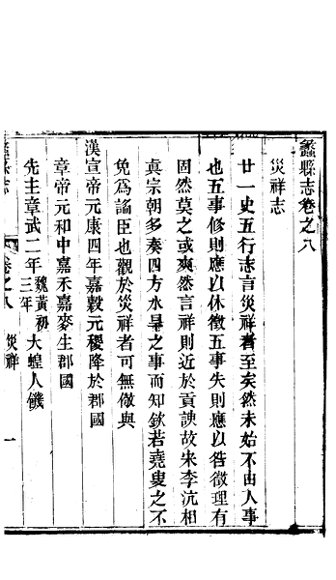 蠡縣志卷之八
災祥志
廿一史五行志言災祥者至矣然未始不由人事
也五事修則應以休徵五事失則應以咎徵理有
固然莫之或爽然言祥則近於貢諛故宋李沆相
真宗朝多奏四方水旱之事而知欽若堯叟之不
免為謠臣也觀於災祥者可無儆與
漢宣帝元康四年嘉穀元稷降於郡國
章帝元和中嘉禾嘉麥生郡國
先主章武二年魏黃初三年大蝗人饑
卷之八 災祥 一